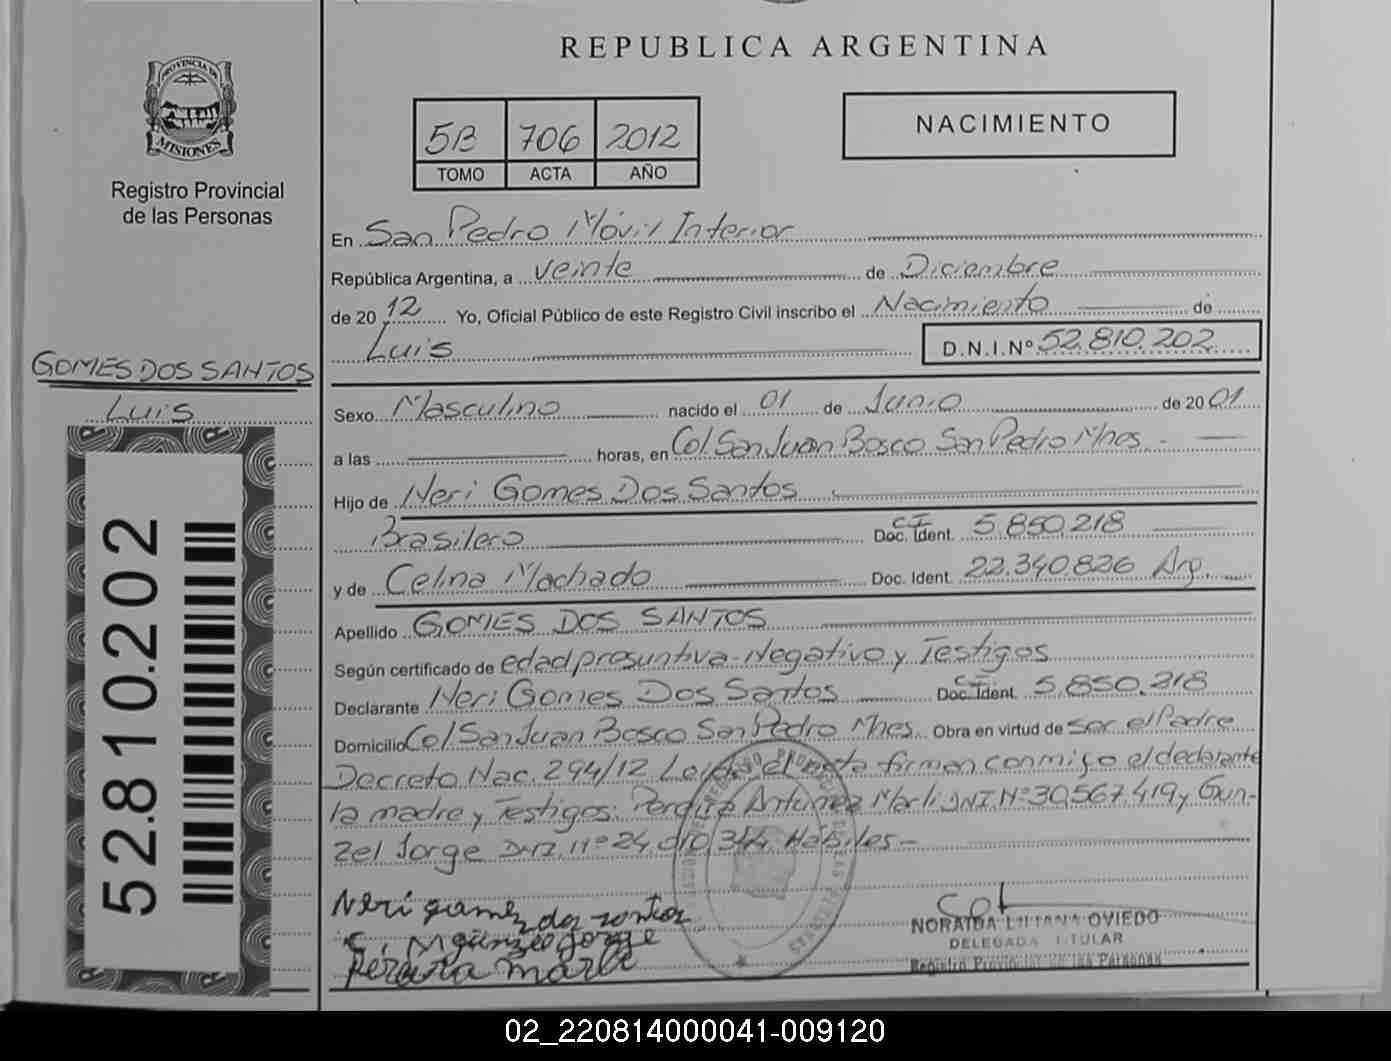 REPUBLICA ARGENTINA
PROVINCIA DE
MISIONES
Registro Provincial
de las Personas
5B 706 2012
TOMO ACTA AÑO
NACIMIENTO
En San Pedro Móvil Interior
República Argentina, a veinte de Diciembre
de 20 12 Yo, Oficial Público de este Registro Civil inscribo el Nacimiento de
Luis D.N.I.Nº 52.810.202
GOMES DOS SANTOS
Luis
52.810.202
Sexo Masculino nacido el 01 de Junio de 20 01
a las horas, en Col. San Juan Bosco San Pedro Mnes.-
Hijo de Neri Gomes Dos Santos
Brasilero C I Doc. Ident. 5.850.218
y de Celina Machado Doc. Ident. 22.340.826 Arg.
Apellido GOMES DOS SANTOS
Según certificado de edad presuntiva-Negativo y Testigos
Declarante Neri Gomes Dos Santos C I Doc. Ident. 5.850.218
Domicilio Col San Juan Bosco San Pedro Mnes. Obra en virtud de ser el Padre
Decreto Nac. 294/12 Leida el acta firman conmigo el declarante
la madre y Testigos: Marli Nº 30.567.419 y Gun-
zel Jorge D.N.I. Nº 24.010.344 Hábiles-
Neri gomez dos santos
C. M gunzel Jorge
Pereira marli
NORAIDA LILIANA OVIEDO
DELEGADA TITULAR
Registro Provincial de las Personas
02_220814000041-009120